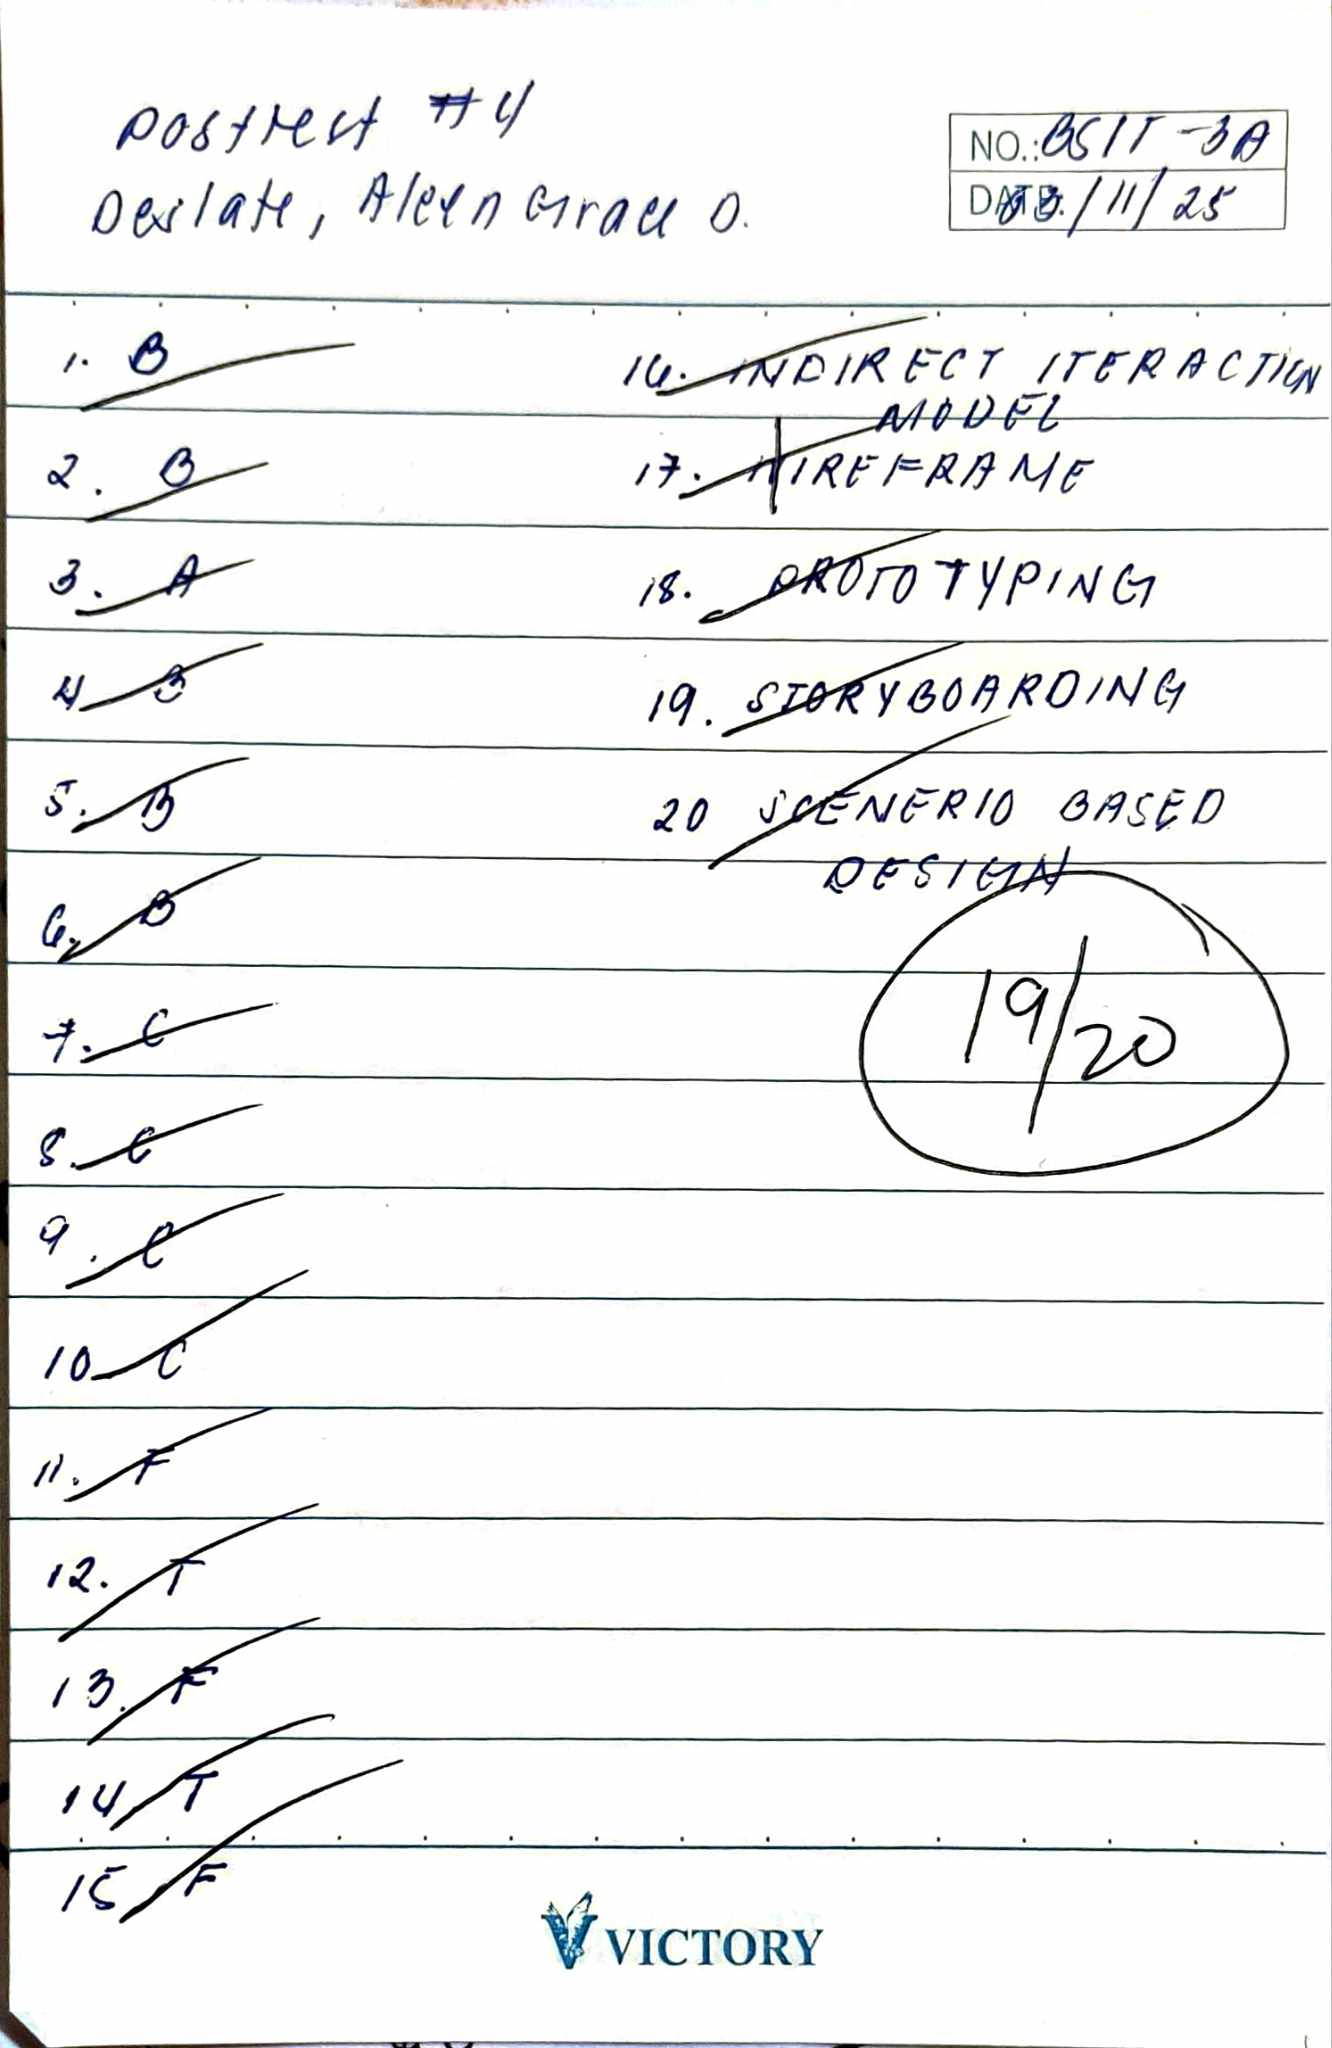 Posttest #4
NO.: BSIT-3A
Deslate, Aleen Grace O.
DATE: 03/11/25
1. B
2. B
3. A
4 B
5. B
6. B
7. C
8. C
9. C
10 C
11. F
12. T
13. F
14 T
15 F
16. INDIRECT ITERACTION
MODEL
17. WIREFRAME
18. PROTOTYPING
19. STORYBOARDING
20 SCENERIO BASED
DESIGN
19/20
VICTORY